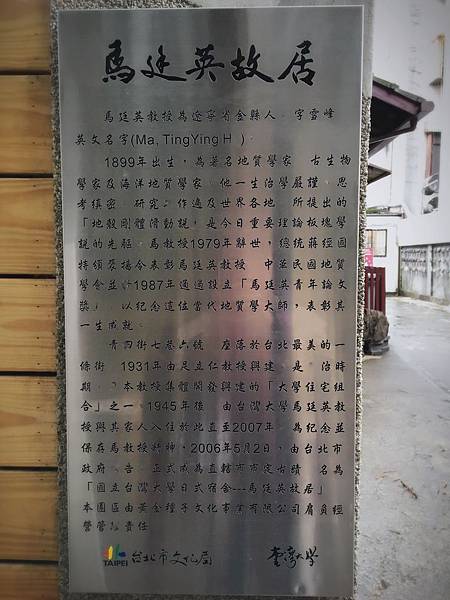 馬廷英故居
馬廷英教授為遼寧省金縣人。字雪峰
英文名字(Ma, TingYing H )。
1899年出生，為著名地質學家 古生物
學家及海洋地質學家。他一生治學嚴謹、思
考縝密 研究工作遍及世界各地 所提出的
「地殼剛體滑動說」是今日重要理論板塊學
說的先驅。馬教授1979年辭世，總統蔣經國
特頒褒揚令表彰馬廷英教授 中 民國地質
學會並於1987年通過設立「馬廷英青年論文
獎」 以紀念這位當代地質學大師，表彰其
一生成就。
青田街七巷六號 座落於台北最美的一
條街 1931年由足立仁教授興建 是 治時
期 本教授集體開發興建的「大學住宅組
合」之一 1945年後 由台灣大學馬廷英教
授與其家人入住於此直至2007年。為紀念並
保存馬教授精神，2006年5月2日，由台北市
政府 告 正式成為直轄市市定古蹟 名為
「國立台灣大學日式宿舍---馬廷英故居」
本園區由黃金種子文化事業有限公司肩負經
營管理責任
TAIPEI 台北市文化局 臺灣大學